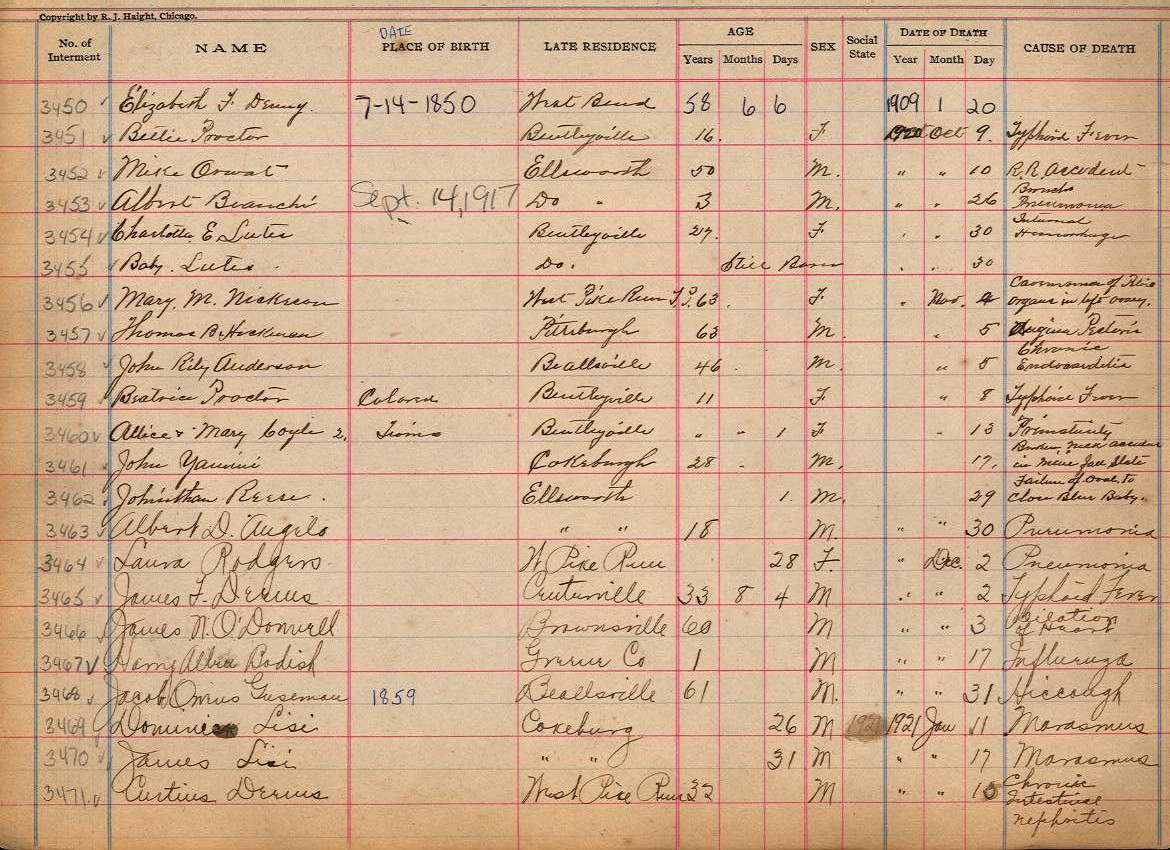 Copyright by R. J. Haight, Chicago.
No. of Interment NAME DATE PLACE OF BIRTH LATE RESIDENCE AGE Years Months Days SEX Social State DATE OF DEATH Year Month Day CAUSE OF DEATH
3450 Elizabeth F. Denny. 7-14-1850 West Bend 58 6 6 1909 1 20
3451 Bettie Proctor Bentleyville 16. F. 1920 Oct 9. Typhoid Fever
3452 Mike Orwat Ellsworth 50 M. " " 10 R.R. Accedent
3453 Albert Bianchi Sept. 14, 1917 Do " 3 M. " " 26 Broncho Pneumonia
3454 Charlotta E Lutes Bentleyville 27. F " " 30 Internal Hemorrhage
3455 Baby. Lutes. Do. Still Born " " 30
3456 Mary. M. Nickeson West Pike Run T.P. 63. F. " Nov. 4 of organs in left
3457 Thomas B Hickman Pittsburgh 63 M. " 5 Angina Pectoris
3458 John Rily Anderson Beallsville 46. M. " 5 Chronic Endocarditis
3459 Beatrice Proctor Colored Bentleyville 11 F " 8 Typhoid Fever
3460 Allice & Mary Coyle 2. Twins Bentleyville " " 1 F " 13 Prematurity
3461 John Yanini Cokeburgh 28 - M. 17. Broken Neck accident in Mine Fall Slate
3462 Johnithan Reese. Ellsworth 1. M. 29 Failure of Oval to Close Blue Baby.
3463 Albert D. Angelo " " 18 M. " " 30 Pneumonia
3464 Laura Rodgers. W Pike Run 28 F. " Dec. 2 Pneumonia
3465 James F. Deems Centerville 33 8 4 M " " 2 Typhoid Fever
3466 James N. O'Donnell Brownsville 60 M " " 3 Dilation of Heart
3467 Harry Albert Bodish Greene Co 1 M " " 17 Influenza
3468 Jacob Owens Guseman 1859 Beallsville 61 M. " " 31 Hiccough
3469 Dominick Lisi Cokeburg 26 M 1921 1921 Jan 11 Marasmus
3470 James Lisi " " 31 M " " 17 Marasmus
3471 Curtius Deems West Pike Run 32 M " " 15 Chronic Intestinal nephritis